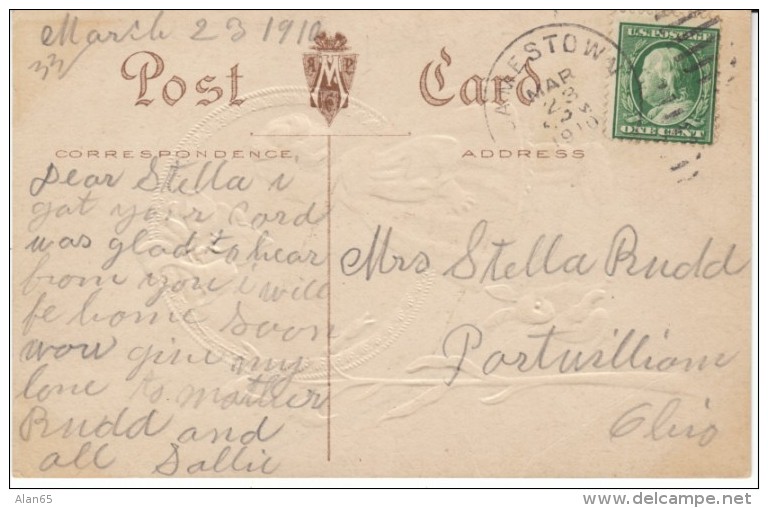 March 23 1910
33
Post Card
M
16
JAMESTOWN
MAR
23
1910
U.S. POSTAGE
ONE CENT
CORRESPONDENCE
ADDRESS
Dear Stella i
got your Card
was glad to hear
from you i will
be home soon
give my
love to mother
Rudd and
all Sallie
Mrs Stella Rudd
Portwilliam
Ohio
Alan65
www.delcampe.net